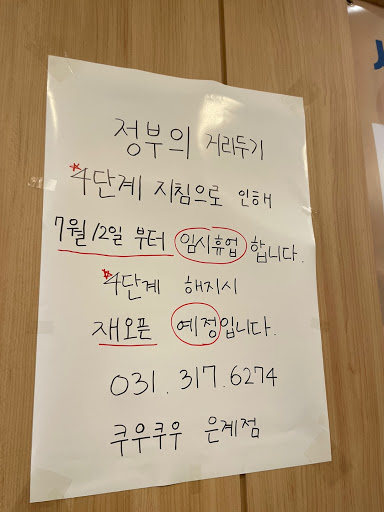 정부의 거리두기
*4단계 지침으로 인해
7월 12일 부터 임시휴업 합니다.
*4단계 해지시
재오픈 예정입니다.
031.317.6274
쿠우쿠우 은계점
J